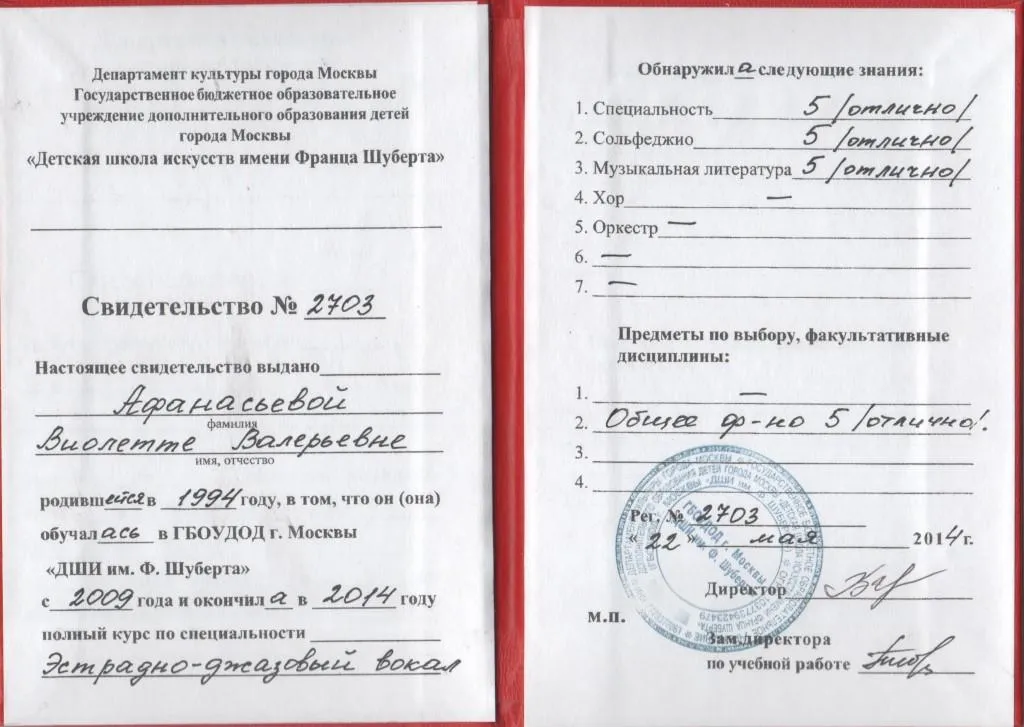 Департамент культуры города Москвы
Государственное бюджетное образовательное
учреждение дополнительного образования детей
города Москвы
«Детская школа искусств имени Франца Шуберта»
Свидетельство № 2703
Настоящее свидетельство выдано
Афанасьевой
фамилия
Виолетте Валерьевне
имя, отчество
родившейся в 1994 году, в том, что он (она)
обучалась в ГБОУДОД г. Москвы
«ДШИ им. Ф. Шуберта»
с 2009 года и окончила в 2014 году
полный курс по специальности
Эстрадно-джазовый вокал
Обнаружила следующие знания:
1. Специальность 5 /отлично/
2. Сольфеджио 5 /отлично/
3. Музыкальная литература 5 /отлично/
4. Хор —
5. Оркестр —
6. —
7. —
Предметы по выбору, факультативные
дисциплины:
1. —
2. Общее ф-но 5 /отлично/.
3.
4.
Рег. № 2703
« 22 » мая 2014 г.
Директор
м.п.
Зам.директора
по учебной работе
ГБОУДОД г. Москвы
ДШИ им. Ф. Шуберта